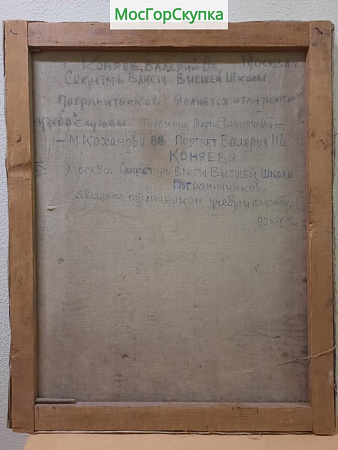 МосГорСкупка
Коняев, Валерий Ив. Москва.
Секретарь ВЛКСМ Высшей Школы
пограничников является отлични-
службы
М. Коханова 68. Портрет Валерия Ив.
Коняева
Москва. Секретарь ВЛКСМ Высшей Школы
Пограничников,
является отличником учебы и службы.